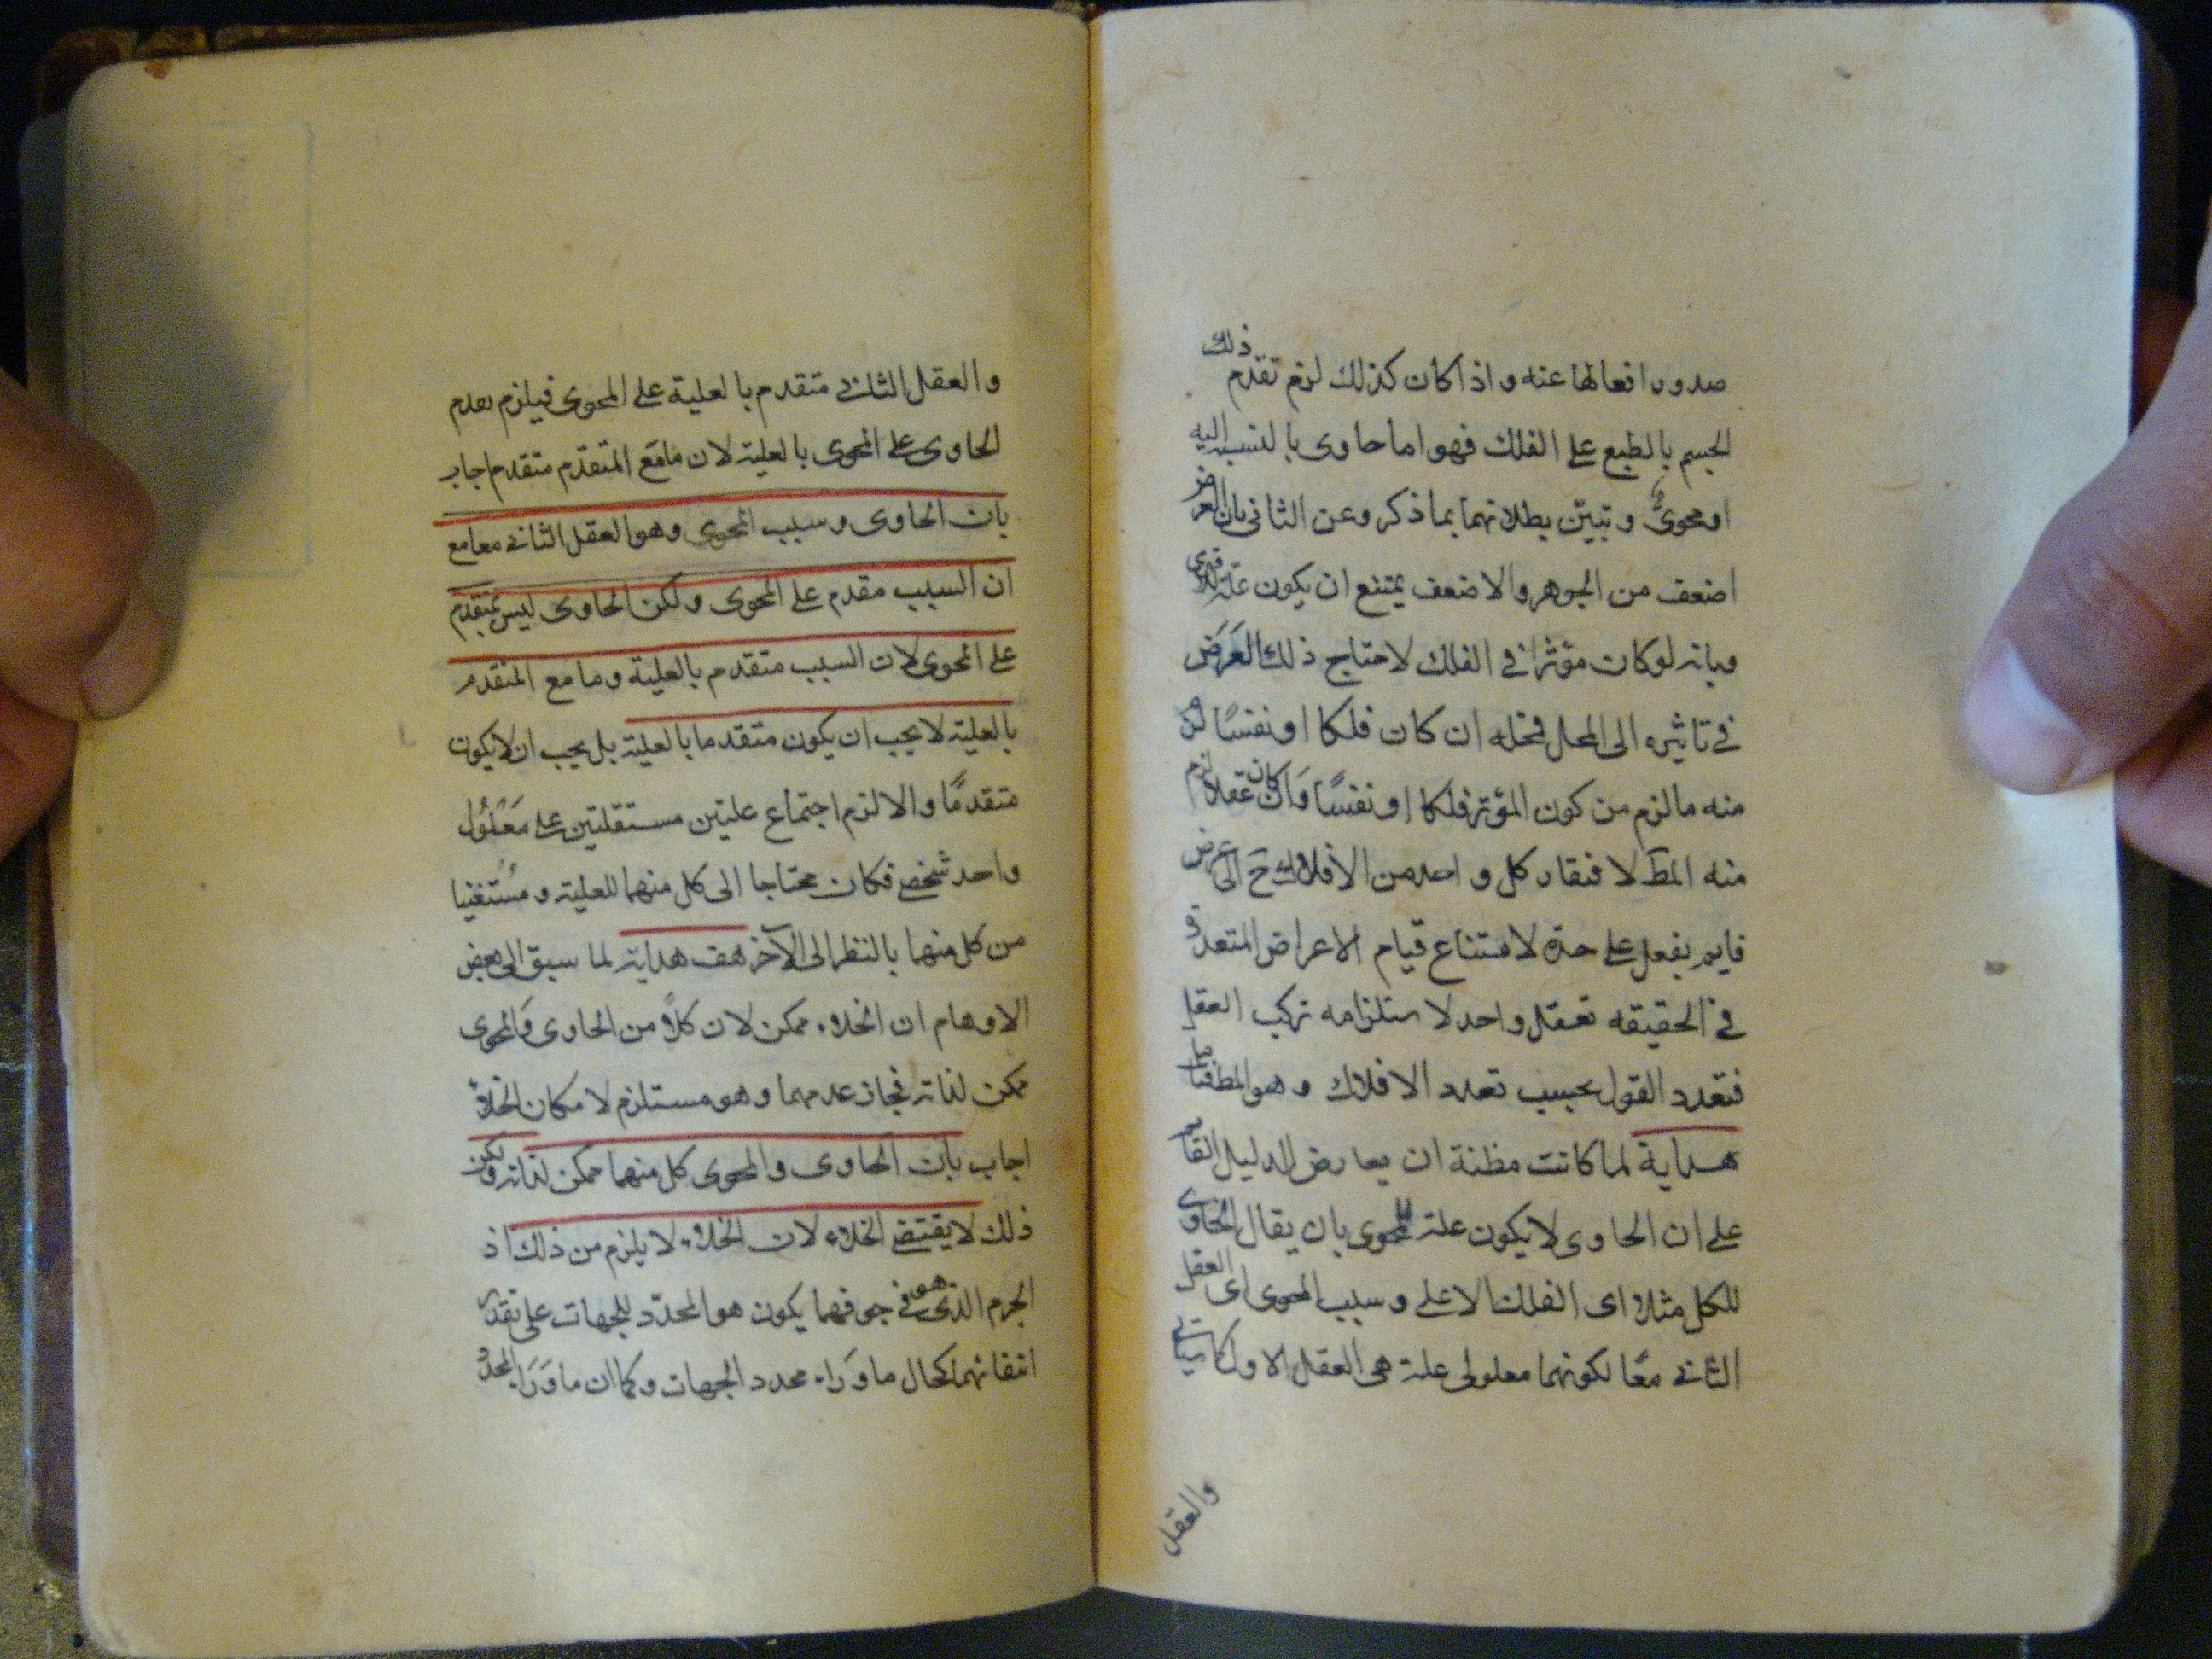 صدور افعالها عنه و اذا كان كذلك لزم تقدم ذلك
الجسم بالطبع على الفلك فهو اما حاوى بالنسبة اليه
او محوىّ و تبيّن بطلانهما بما ذكر وعن الثانى بان العرض
اضعف من الجوهر والاضعف يمتنع ان يكون علة للاقوى
وبانه لو كان مؤثرا فى الفلك لاحتاج ذلك العَرَض
فى تاثيره الى المحل فمحله ان كان فلكا او نفسًا لزم
منه ما لزم من كون المؤثر فلكا او نفسًا وَان كان عقلا لزم
منه المط لافتقار كل واحد من الافلاك ح الى عرض
قايم بعقل على حدة لامتناع قيام الاعراض المتعددة
فى الحقيقه بعقل واحد لاستلزامه تركب العقل
فتعدد العقول بحسب تعدد الافلاك و هو المط
هداية لما كانت مظنة ان يعارض الدليل القايم
على ان الحاوى لا يكون علة للمحوى بان يقال الحاوى
للكل مثلا اى الفلك الاعلى و سبب المحوى اى العقل
الثانى معًا لكونهما معلولى علة هى العقل الاول كما سياتى
والعقل
والعقل الثانى متقدم بالعلية على المحوى فيلزم تقدم
الحاوى على المحوى بالعلية لان ما مَع المتقدّم متقدم اجاب
بان الحاوى و سبب المحوى و هو العقل الثانى معا مع
ان السبب مقدم على المحوى ولكن الحاوى ليس بمتقدم
على المحوى لان السبب متقدم بالعلية و ما مع المتقدم
بالعلية لا يجب ان يكون متقدما بالعلية بل يجب ان لا يكون
متقدمًا والا لزم اجتماع علتين مستقلتين على مَعْلُول
واحد شخصى فكان محتاجا الى كل منهما للعلية و مُسْتغنيا
من كل منهما بالنظر الى الآخر هف هداية لما سبق الى بعض
الاوهام ان الخلاء ممكن لان كلاً من الحاوى وَالمحوى
ممكن لذاته فجاز عدمهما و هو مستلزم لامكان الخلاء
اجاب بان الحاوى و المحوى كل منهما ممكن لذاته ولكن
ذلك لا يقتضى الخلاء لان الخلاء لا يلزم من ذلك اذ
الجرم الذى هو فى جوفهما يكون هو المحدّد للجهات على تقدير
انتفائهما كحال ما وَراء محدد الجهات و كما ان ما وَرَا المحدد